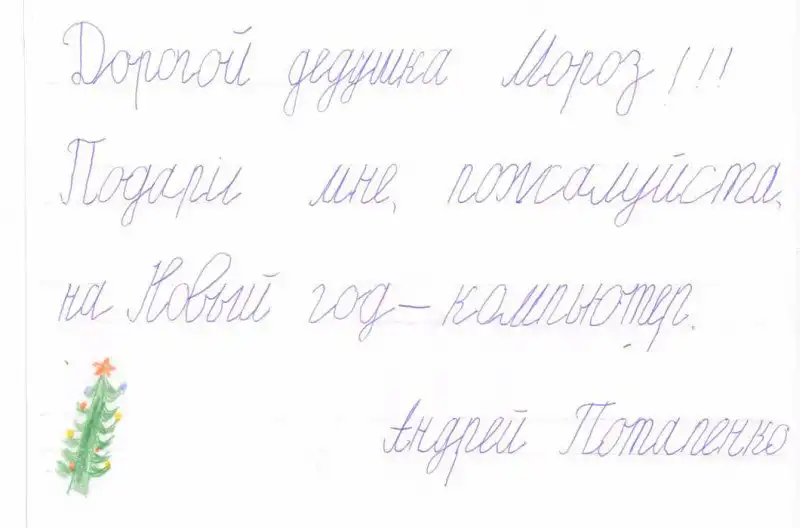 Дорогой дедушка Мороз!!!
Подари мне, пожалуйста,
на Новый год – компьютер.
Андрей Потапенко